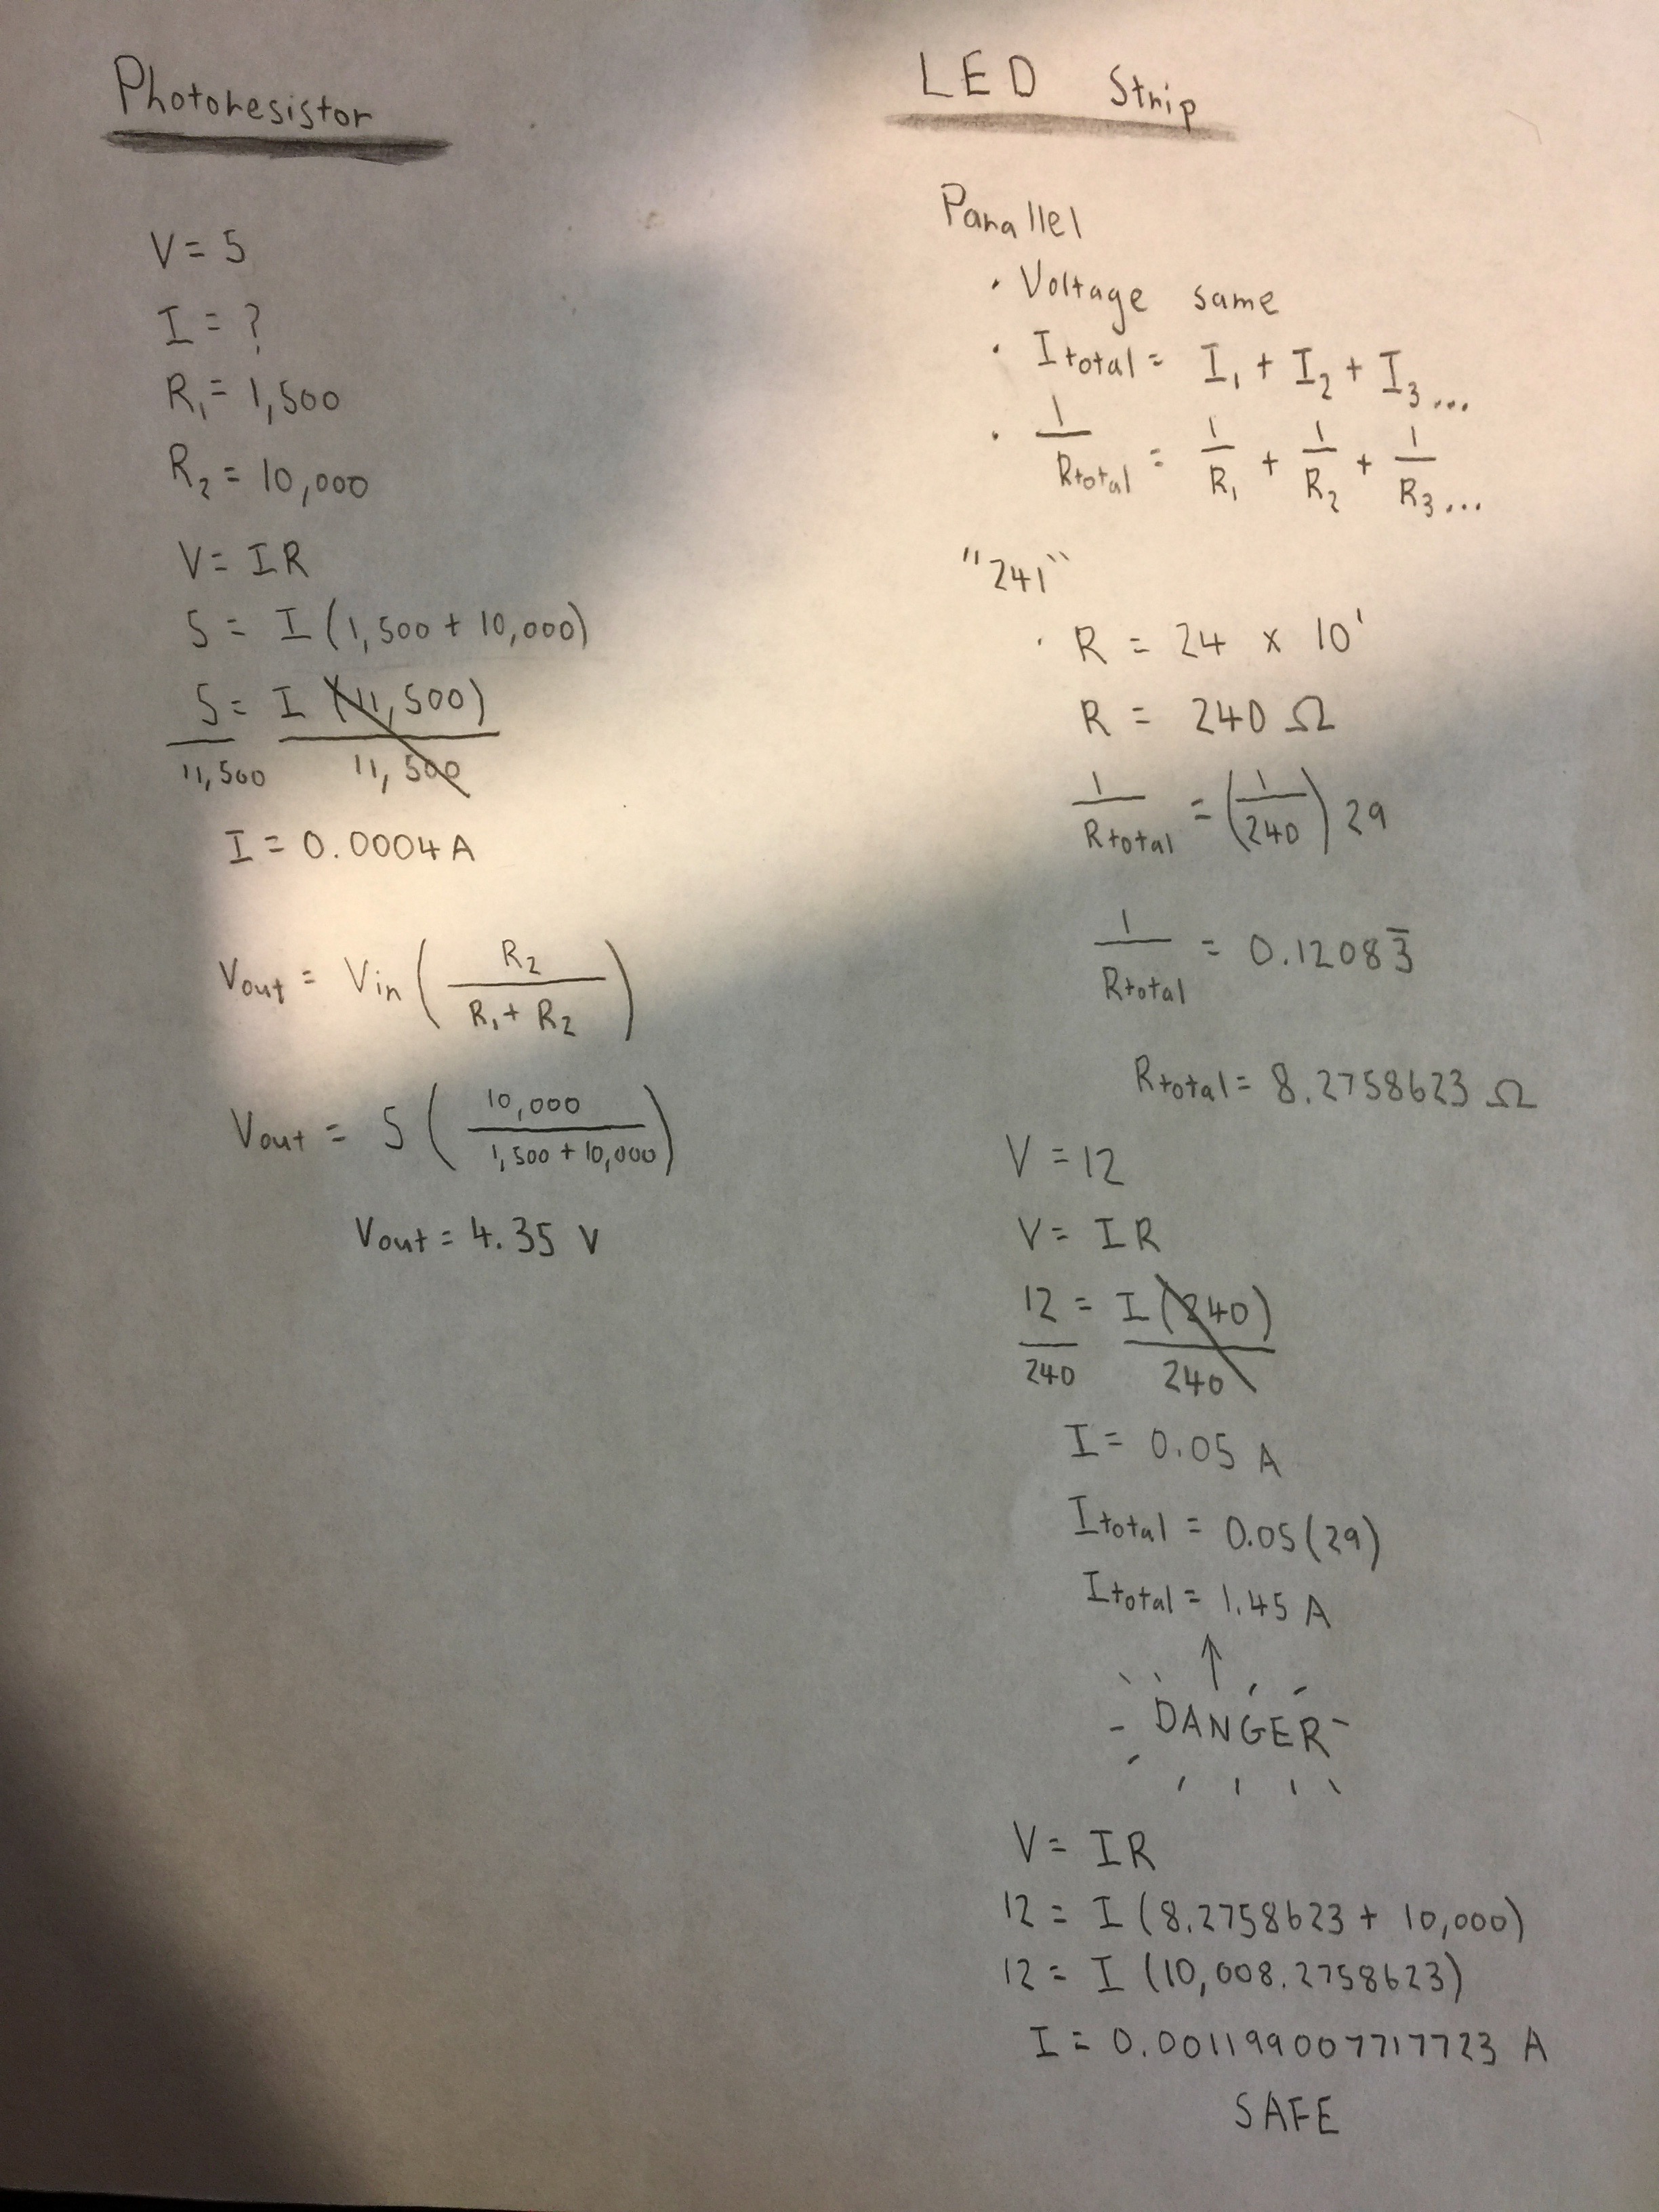 Photoresistor
V = 5
I = ?
R₁ = 1,500
R₂ = 10,000
V = IR
5 = I (1,500 + 10,000)
5 = I (11,500)
11,500 11,500
I = 0.0004 A
Vout = Vin ( R₂ / R₁ + R₂ )
Vout = 5 ( 10,000 / 1,500 + 10,000 )
Vout = 4.35 V
LED Strip
Parallel
· Voltage same
· Itotal = I₁ + I₂ + I₃ ...
· 1/Rtotal = 1/R₁ + 1/R₂ + 1/R₃ ...
"241"
· R = 24 x 10¹
R = 240 Ω
1/Rtotal = (1/240) 29
1/Rtotal = 0.12083̅
Rtotal = 8.2758623 Ω
V = 12
V = IR
12 = I (240)
240 240
I = 0.05 A
Itotal = 0.05 (29)
Itotal = 1.45 A
↑
DANGER
V = IR
12 = I (8.2758623 + 10,000)
12 = I (10,008.2758623)
I = 0.001199007717723 A
SAFE